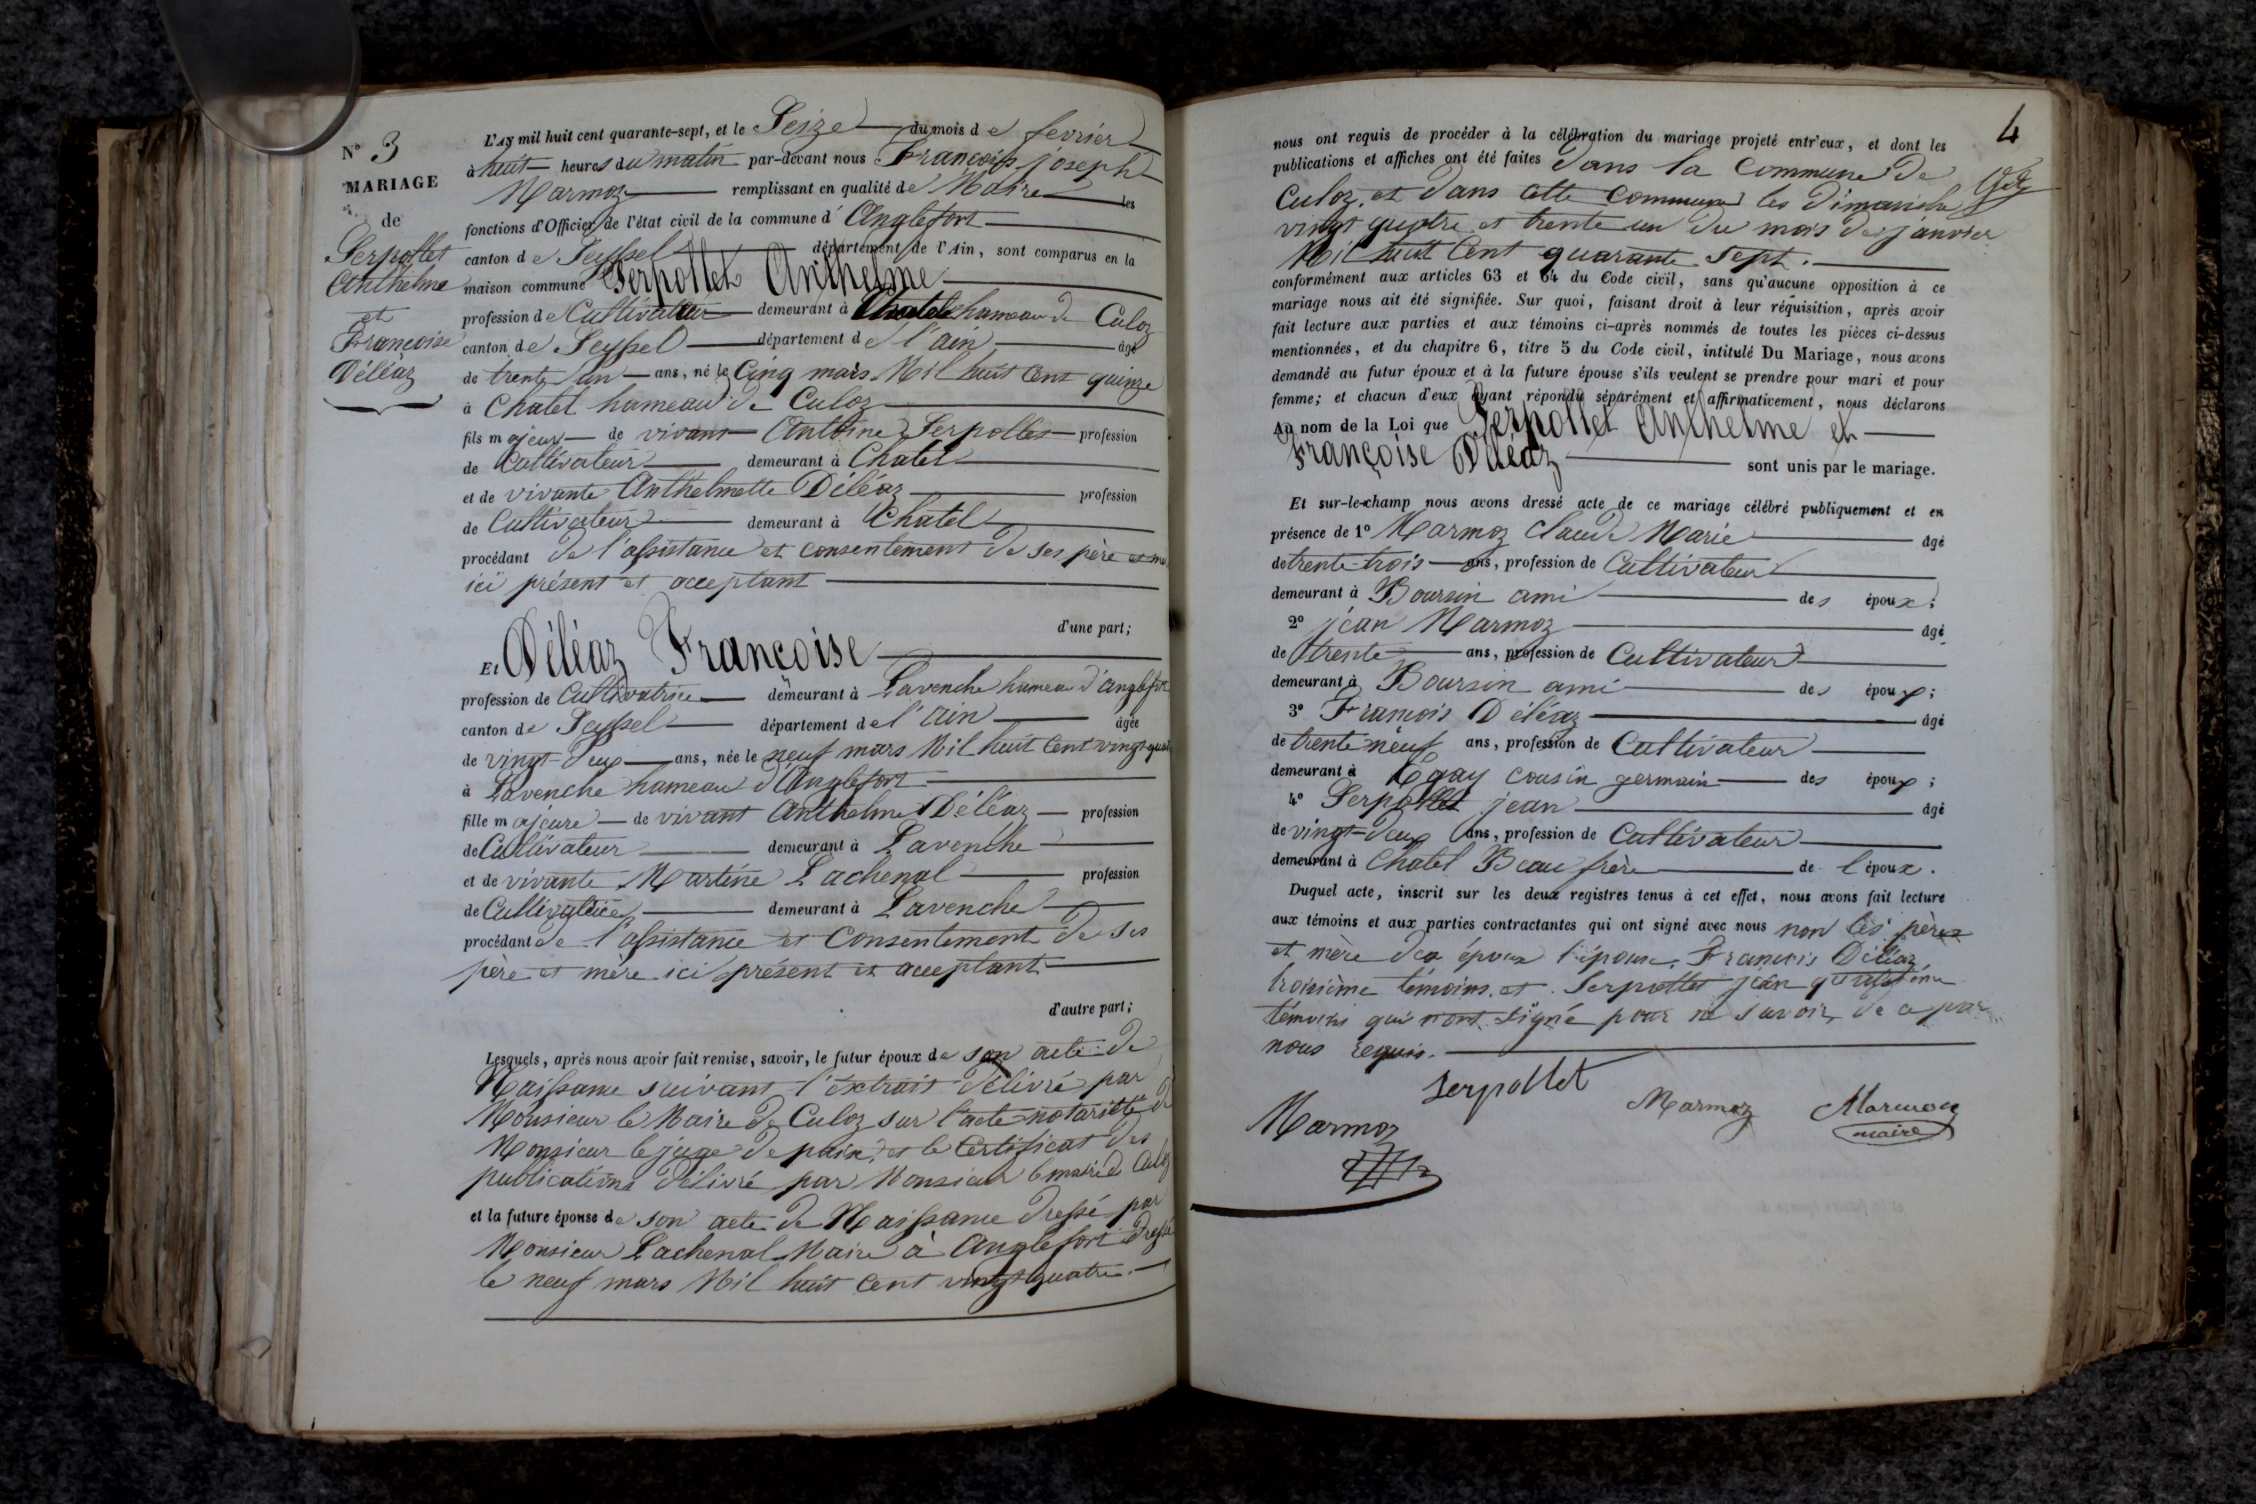 N° 3
MARIAGE
de
Serpollet
Anthelme
et
Françoise
Déléaz
L'AN mil huit cent quarante-sept, et le Seize du mois de fevrier
à huit heures du matin par-devant nous François joseph
Marmoz remplissant en qualité de Maire les
fonctions d'Officier de l'état civil de la commune d'Anglefort
canton de Seyssel département de l'Ain, sont comparus en la
maison commune Serpollet Anthelme
profession de Cultivateur demeurant à Chatel hameau de Culoz
canton de Seyssel département de l'ain âgé
de trente un ans, né le Cinq mars Mil huit Cent quinze
à Chatel hameau de Culoz
fils majeur de vivant Antoine Serpollet profession
de Cultivateur demeurant à Chatel
et de vivante Anthelmette Déléaz profession
de Cultivateur demeurant à Chatel
procédant de l'assistance et consentement de ses père et me
ici présent et acceptant
d'une part;
Et Déléaz Françoise
profession de Cultivatrice demeurant à Lavenche hameau d'anglefort
canton de Seyssel département de l'ain âgée
de vingt-deux ans, née le neuf mars Mil huit Cent vingt quat
à Lavenche hameau d'Anglefort
fille majeure de vivant Anthelme Déléaz profession
de Cultivateur demeurant à Lavenche
et de vivante Martine Lachenal profession
de Cultivatrice demeurant à Lavenche
procédant de l'assistance et Consentement de ses
père et mère ici présent et acceptant
d'autre part;
Lesquels, après nous avoir fait remise, savoir, le futur époux de son acte de
Naissance suivant l'extrait délivré par
Monsieur le Maire de Culoz sur l'acte notariété de
Monsieur le juge de paix, et le Certificat des
publications délivré par Monsieur le maire de Culoz
et la future épouse de son acte de Naissance dressé par
Monsieur Lachenal Maire à Anglefort dressé
le neuf mars Mil huit Cent vingt quatre.
4
nous ont requis de procéder à la célébration du mariage projeté entr'eux, et dont les
publications et affiches ont été faites dans la commune de
Culoz, et dans cette Commune les dimanche
vingt quatre et trente un du mois de janvier
Mil huit Cent quarante Sept.
conformément aux articles 63 et 64 du Code civil, sans qu'aucune opposition à ce
mariage nous ait été signifiée. Sur quoi, faisant droit à leur réquisition, après avoir
fait lecture aux parties et aux témoins ci-après nommés de toutes les pièces ci-dessus
mentionnées, et du chapitre 6, titre 5 du Code civil, intitulé Du Mariage, nous avons
demandé au futur époux et à la future épouse s'ils veulent se prendre pour mari et pour
femme; et chacun d'eux ayant répondu séparément et affirmativement, nous déclarons
Au nom de la Loi que Serpollet Anthelme et
Françoise Déléaz sont unis par le mariage.
Et sur-le-champ nous avons dressé acte de ce mariage célébré publiquement et en
présence de 1° Marmoz Claude Marie âgé
de trente-trois ans, profession de Cultivateur
demeurant à Boursin ami des époux;
2° jean Marmoz âgé
de trente ans, profession de Cultivateur
demeurant à Boursin ami des époux;
3° François Déléaz âgé
de trente neuf ans, profession de Cultivateur
demeurant à cousin germain des époux;
4° Serpollet jean âgé
de vingt-deux ans, profession de Cultivateur
demeurant à Chatel Beau frère de l'époux.
Duquel acte, inscrit sur les deux registres tenus à cet effet, nous avons fait lecture
aux témoins et aux parties contractantes qui ont signé avec nous non les pères
et mère des époux l'épouse, François Déléaz
troisième témoins, et Serpollet jean quatrième
témoins qui n'ont signé pour ne savoir, de ce par
nous requis.
Serpollet
Marmoz
Marmoz
Marmoz
maire